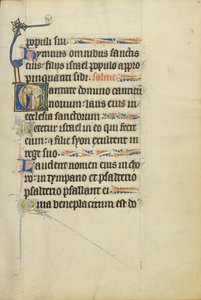 populi sui.
Hymnus omnibus sanctis
eius: filiis israel populo appro
pinquanti sibi. psalmus
Cantate domino canticum
novum: laus eius in
ecclesia sanctorum
Letetur israel in eo qui fecit
eum: et filie syon exultent in
rege suo.
Laudent nomen eius in cho
ro: in tympano et psalterio
psalterio psallant ei
Quia beneplacitum est do